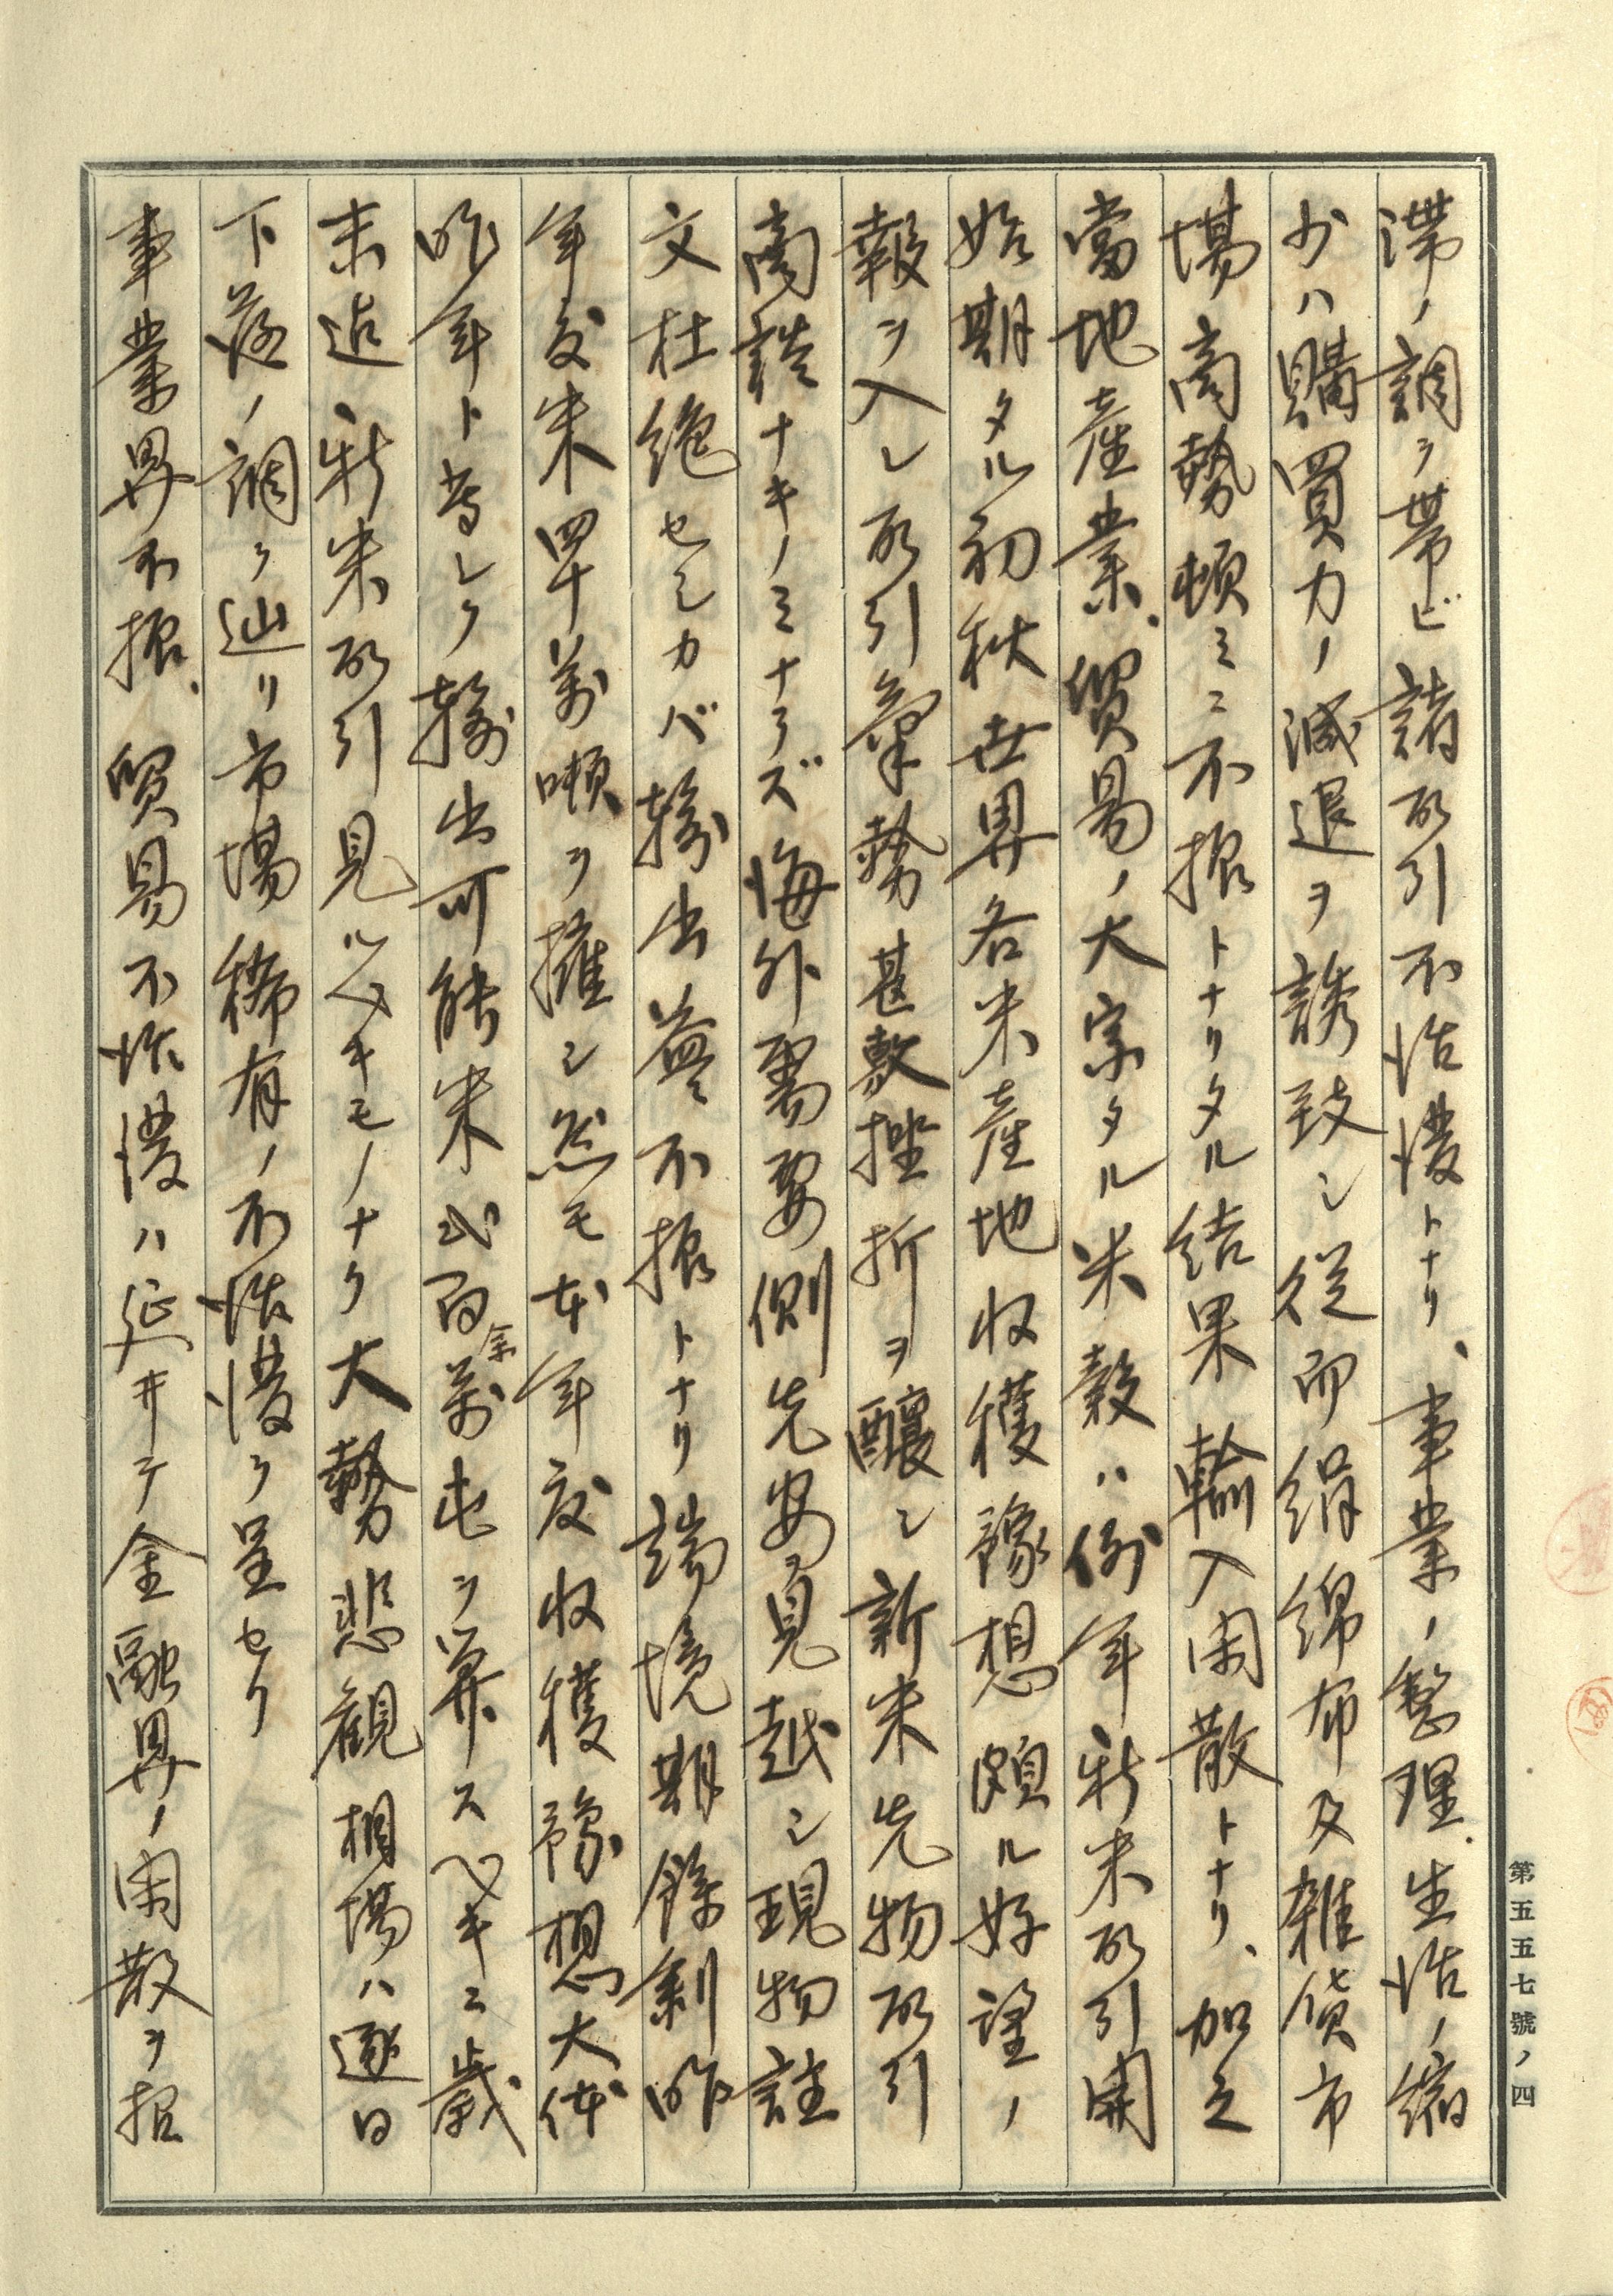 滞ノ調ヲ帯ビ諸取引不活溌トナリ、事業ノ整理、生活ノ縮
少ハ購買力ノ減退ヲ誘致シ従而絹綿布及雑貨市
場商勢頓ミニ不振トナリタル結果輸入閑散トナリ、加之
當地産業、貿易ノ大宗タル米穀ハ例年新米取引開
始期タル初秋世界各米産地収穫豫想頗ル好望ノ
報ヲ入レ取引気勢甚敷挫折ヲ醸シ新米先物取引
商談ナキノミナラズ海外需要側先安ヲ見越シ現物註
文杜絶セシカバ輸出益々不振トナリ端境期餘剰昨
年度米四十萬噸ヲ擁シ然モ本年度収穫豫想大体
昨年ト等シク輸出可能米弐百余萬屯ヲ算スベキニ歳
末迄新米取引見ルベキモノナク大勢悲観相場ハ逐日
下落ノ調ヲ辿リ市場稀有ノ不活溌ヲ呈セリ
事業界不振、貿易不活溌ハ延ヰテ金融界ノ閑散ヲ招
第五五七號ノ四